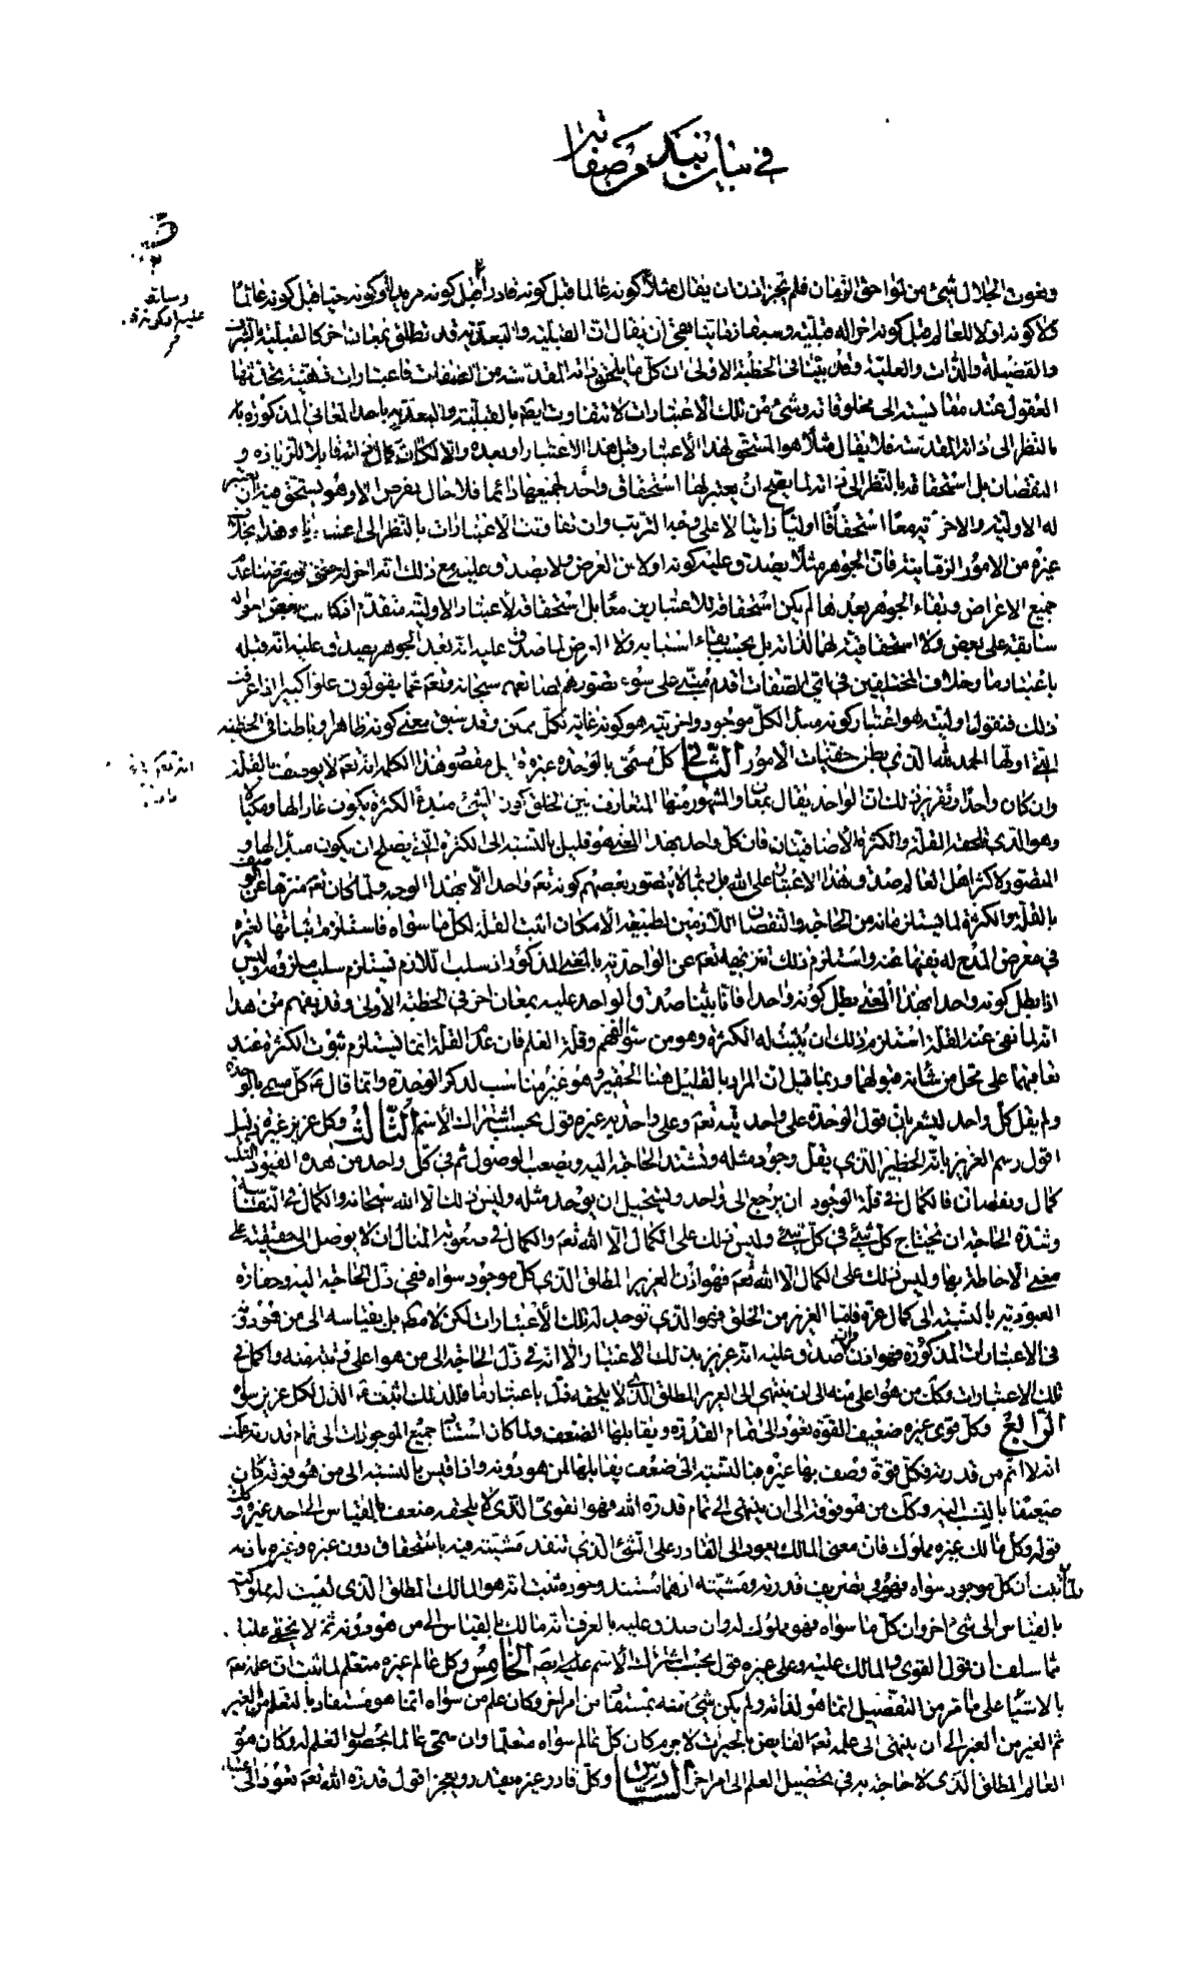 في بيان نبذ من صفاته
ونعوت الجلال شيء من لواحق الزمان فلم يجز اذن ان يقال مثلا كونه عالما قبل كونه قادرا قبل كونه مريدا وكونه حيا قبل كونه عالما
ولا كونه اولا للعالم قبل كونه اخرا له قبلية وسبقا زمانيا بقى ان يقال ان القبلية والبعدية قد تطلق بمعان اخر كالقبلية بالشرف
والفضيلة والذات والعلية وقد بينا في الخطبة الاولى ان كل ما يلحق ذاته المقدسة من الصفات فاعتبارات ذهنية يحدثها
العقول عند مقايسته الى مخلوقاته وشيء من تلك الاعتبارات لا تتفاوت ايضا بالقبلية والبعدية باحد المعاني المذكورة
بالنظر الى ذاته المقدسة فلا يقال مثلا هو المستحق لهذا الاعتبار قبل هذا الاعتبار او بعده والا لكان كمال ذاته قابلا للزيادة و
النقصان بل استحقاقه بالنظر الى ذاته لما يصح ان يعتبر لها استحقاق واحد لجميعها دائما فلا حال يفرض الا وهو يستحق فيه ان يعتبر
له الاولية والاخرية معا استحقاقا اوليا ذاتيا لا على وجه الترتب وان تفاوتت الاعتبارات بالنظر الى اعتبارنا وهذا بخلاف
غيره من الامور الزمانية فان الجوهر مثلا يصدق عليه كونه اولا من العرض ولا يصدق عليه مع ذلك انه اخر له حتى لو فرضنا عدم
جميع الاعراض وبقاء الجوهر بعدها لم يكن استحقاقه للاعتبارين معا بل استحقاقه لاعتبار الاولية متقدم اذ كانت بعض احواله
سابقة على بعض ولا استحقاقية لهما لذاته بل بحسب بقاء اسبابه ولا العرض لما صدق عليه انه بعد الجوهر يصدق عليه انه قبله
باعتبار ما وخلاف المختلفين في اي الصفات اقدم مبني على سوء تصورهم لصانعهم سبحانه وتعم عما يقولون علوا كبيرا اذا عرفت
ذلك فنقول اوليته هو اعتبار كونه مبدأ لكل موجود واخريته هو كونه غاية لكل ممكن وقد سبق معنى كونه ظاهرا وباطنا في الخطبة
التي اولها الحمد لله الذي بطن خفيات الامور الثاني كل مسمى بالوحدة غيره قليل مقصود هذه الكلمة انه تعم لا يوصف بالقلة
وان كان واحدا وتقرير ذلك ان الواحد يقال بمعان والمشهور منها المتعارف بين الخلق كون الشيء مبدأ لكثرة يكون عادا لها ومكيالا
وهو الذي تلحقه القلة والكثرة الاضافيتان فان كل واحد بهذا المعنى هو قليل بالنسبة الى الكثرة التي يصلح ان يكون مبدأ لها و
المتصور لاكثر اهل العالم صدق هذا الاعتبار على الله بل ربما لا يتصور بعضهم كونه تعم واحدا الا بهذا الوجه ولما كان تعم منزها عن الوصف
بالقلة والكثرة لما يستلزمانه من الحاجة والنقصان اللازمين لطبيعة الامكان اثبت القلة لكل ما سواه فاستلزم اثباتها لغيره
في معرض المدح له نفيها عنه واستلزم ذلك تنزيهه تعم عن الواحدية بالمعنى المذكور اذ سلب اللازم يستلزم سلب ملزومه وليس
اذا بطل كونه واحدا بهذا المعنى بطل كونه واحدا فانا بينا صدق الواحد عليه بمعان اخر في الخطبة الاولى وقد يفهم من هذا
انه لما نفى عنه القلة استلزم ذلك ان يثبت له الكثرة وهو من سوء الفهم وقلة العلم فان عدم القلة انما يستلزم ثبوت الكثرة عند
تعاقبهما على محل من شأنه قبولهما وربما قيل ان المراد بالقليل هنا الحقير وهو غير مناسب لذكر الوحدة وانما قال ع كل مسمى بالوحدة
ولم يقل كل واحد ليشعر بان قول الوحدة على واحديته تعم وعلى واحدية غيره قول بحسب اشتراك الاسم الثالث وكل عزيز غيره ذليل
اقول رسم العزيز بانه الخطير الذي يقل وجود مثله وتشتد الحاجة اليه ويصعب الوصول ثم في كل واحد من هذه القيود الثلثة
كمال ونقصان فالكمال في قلة الوجود ان يرجع الى واحد ويستحيل ان يوجد مثله وليس ذلك الا الله سبحانه والكمال في النفاسة
وشدة الحاجة ان يحتاج كل شيء في كل شيء وليس ذلك على الكمال الا الله تعم والكمال في صعوبة المنال ان لا يوصل الى حقيقته على
معنى الاحاطة بها وليس ذلك على الكمال الا الله تعم فهو اذن العزيز المطلق الذي كل موجود سواه ففي ذل الحاجة اليه وحقارة
العبودية بالنسبة الى كمال عزه فاما العزيز من الخلق فهو الذي توجد له تلك الاعتبارات لكن لا مطلقا بل بقياسه الى من هو دونه
في الاعتبارات المذكورة فهو اذن وان صدق عليه انه عزيز بتلك الاعتبار الا انه في ذل الحاجة الى من هو اعلى رتبة منه واكمل في
تلك الاعتبارات وكذلك من هو اعلى منه الى ان ينتهى الى العزيز المطلق الذي لا يلحقه ذل باعتبار ما فلذلك اثبت ع الذل لكل عزيز سواه
الرابع وكل قوى غيره ضعيف القوة تعود الى تمام القدرة ويقابلها الضعف ولما كان استناد جميع الموجودات الى تمام قدرته علمت
انه لا اتم من قدرته فكل قوة وصف بها غيره فبالنسبة الى ضعف يقابلها لمن هو دونه واذا قيس بالنسبة الى من هو فوقه كان
ضعيفا بالنسبة اليه وكذلك من هو فوقه الى ان ينتهى الى تمام قدرة الله فهو القوى الذي لا يلحقه ضعف بالقياس الى احد غيره وكذلك
قوله وكل مالك غيره مملوك فان معنى المالك يعود الى القادر على الشيء الذي تنفذ مشيته فيه باستحقاق دون غيره وغيره باذنه
ولما ثبت ان كل موجود سواه فهو في تصريف قدرته ومشيته اذ هما مستند وجوده ثبت انه هو المالك المطلق الذي ليست له مملوكية
بالقياس الى شيء اخر وان كل ما سواه فهو مملوك له وان صدق عليه بالعرف انه مالك بالقياس الى من هو دونه ثم لا يخفى عليك
مما سلف ان قول القوى والمالك عليه وعلى غيره قول بحسب اشتراك الاسم عليه ايضا الخامس وكل عالم غيره متعلم لما ثبت ان علمه تعم
بالاشياء على ما مر من التفصيل انما هو لذاته ولم يكن شيء منه بمستفاد من امر اخر وكان علم من سواه انما هو مستفاد بالتعلم من الغير
ثم الغير من الغير الى ان ينتهى الى علمه تعم الفائض بالخيرات لا جرم كان كل عالم سواه متعلما وان سمى عالما بحصول العلم له وكان هو
العالم المطلق الذي لا حاجة به في تحصيل العلم الى امر اخر السادس وكل قادر غيره يقدر ويعجز اقول قدرة الله تعم تعود الى اعتبار